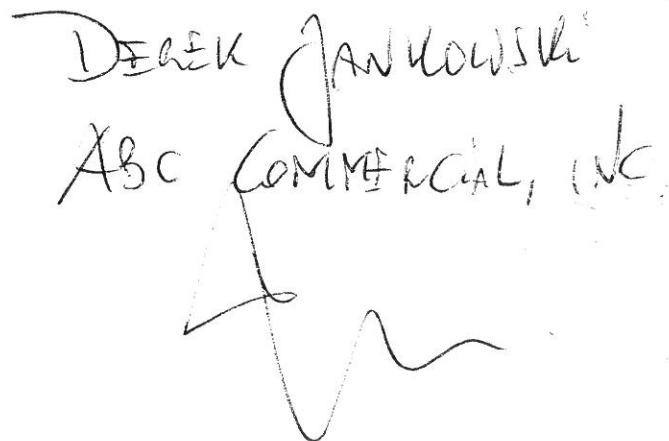 DEREK JANKOWSKI
ABC COMMERCIAL, INC.